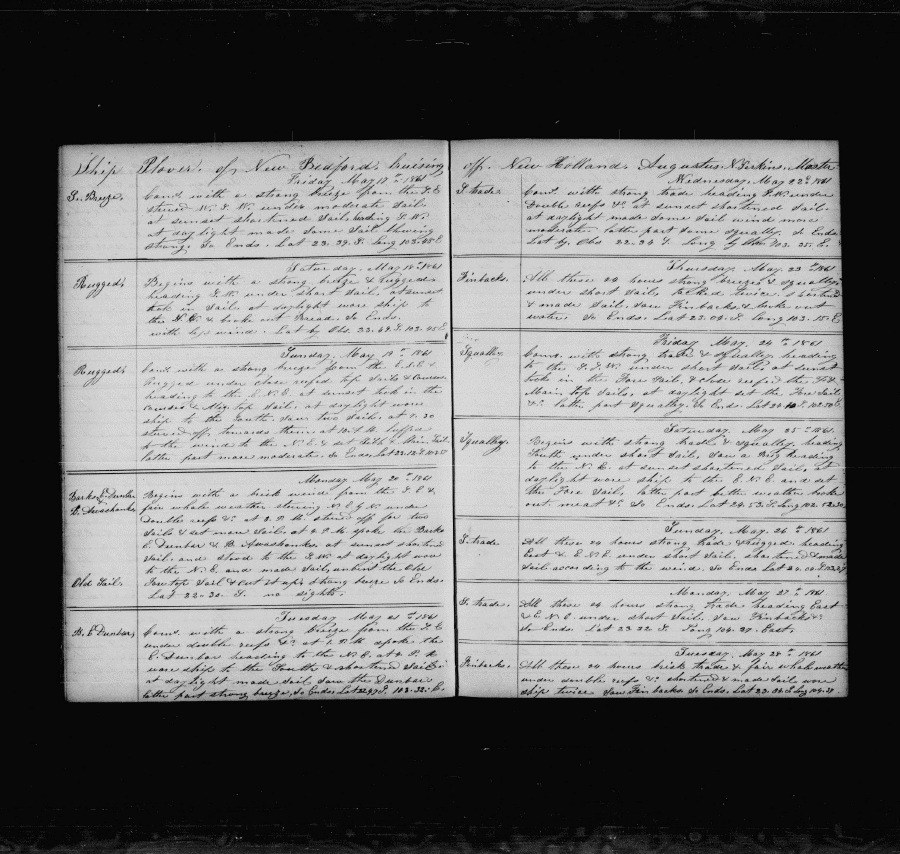 Ship Plover, of New Bedford, Cruising
Friday May 17th 1861
S. Breeze. Comd. with a strong breeze from the S.E
steered N. & W. under moderate Sail.
at sunset shortened Sail, heading S.W.
at daylight made Some Sail blowing
strong. So Ends. Lat 23.39. S. Long 103.45 E
Saturday, May 18th 1861
Rugged; Begins with a strong breeze & rugged
heading S.W. under short Sail, at sunset
took in Sail, at daylight wore ship to
the and broke out Bread. So Ends.
with wind. Lat by Obs. 23.49 S. 102.45 E
Sunday, May 19th 1861
Rugged; Comd. with a strong breeze from the E.S.E &
rugged under close reefed top Sails & Courses
heading to the E.N.E. at sunset took in the
Courses & Top Sail. at daylight wore
ship to the South. Saw two Sails. at 7.30
steered off towards them at
to the wind to the N.E. & set & Main Sail.
latter part more moderate. So Ends. Lat 23.12 S.
Monday May 20th 1861
Barks E. Dunbar
& B. Awashonks Begins with a brisk wind from the S.E &
fair whale weather steering N.E by N. under
double reefs &c. at 3. P.M. steered off for two
Sails & set more Sail. at 4 P.M. spoke the Barks
E. Dunbar & B. Awashonks. at sunset shortened
Sail. and stood to the S.W. at daylight wore
to the N.E. and made Sail, unbent the Old
Old Sail; Foretop Sail & cut it up; strong breeze So Ends.
Lat 22-30. S. no sights.
Tuesday May 21st 1861
B. E Dunbar, Comd. with a strong breeze from the S.E
under double reefs &c. at P.M. spoke the
E. Dunbar heading to the N.E. at 4 P.M.
wore ship to the South & shortened Sail &c.
at daylight made Sail saw the Dunbar
latter part strong breeze, So Ends. Lat 22.47 S. 103-32. E.
off New Holland. Augustus N. Perkins. Master
Wednesday, May 22d 1861
S. trade. Comd. with strong trade heading under
double reefs &c. at sunset shortened Sail.
at daylight made Some Sail wind more
moderate. latter part some squally. So Ends
Lat by Obs 22-34 S. Long by 103.35 E.
Thursday, May. 23d 1861
Finbacks. All these 24 hours strong breeze & squally
under short Sail, tacked twice. shortened
& made Sail. Saw Finbacks & broke out
water. So Ends. Lat 23.09. S Long 103.15. E
Friday May. 24th 1861
Squally. Comd. with strong trade & squally heading
to the S.S.W. under short Sail; at sunset
took in the Fore Sail, & close reefed the Fore &
Main top Sails, at daylight set the Fore Sail
&c. latter part squally. So Ends. Lat
Saturday, May 25th 1861.
Squally. Begins with strong trade & squally heading
South under short Sail. Saw a Brig heading
to the N.E. at sunset shortened Sail, at
daylight wore ship to the E.N.E and set
the Fore Sail, latter part better weather broke
out meat &c. So Ends. Lat 24.53 S. Long 102.52
Sunday, May. 26th 1861
S. trade All these 24 hours strong trade & rugged heading
East & E.N.E under short Sail, shortened & made
Sail according to the wind. So Ends Lat 24.
Monday, May. 27th 1861
S. trade. All these 24 hours strong trade heading East
& E.N.E. under short Sail. saw Finbacks &c
So Ends. Lat 23 22 S. Long 104.27. East.
Tuesday, May 28th 1861
Finbacks. All these 24 hours brisk trade & fair whale weather
under double reefs &c shortened & made Sail wore
ship twice Saw Finbacks So Ends. Lat 23. S. Long 104.